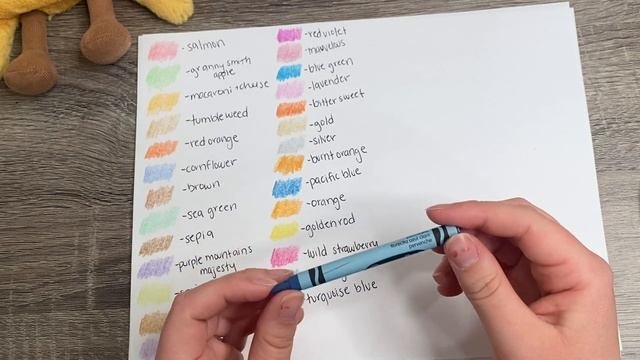 -salmon
-granny smith
apple
-macaroni + cheese
-tumbleweed
-red orange
-cornflower
-brown
-sea green
-sepia
-purple mountains
majesty
-red violet
-mauvelous
-blue green
-lavender
-bittersweet
-gold
-silver
-burnt orange
-pacific blue
-orange
-goldenrod
-wild strawberry
turquoise blue
pervenche